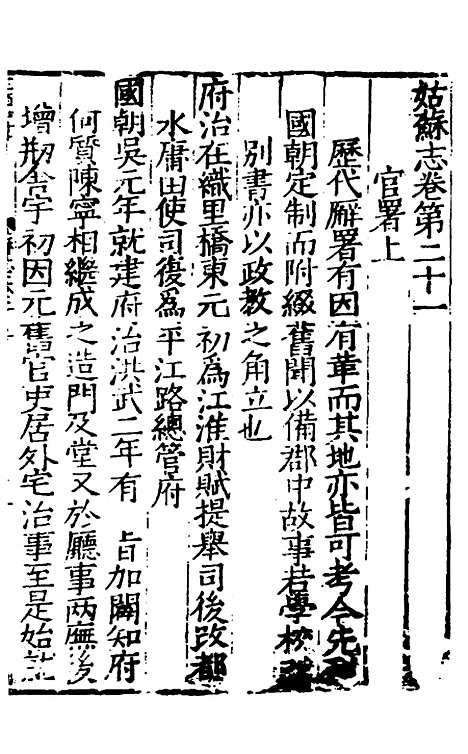 姑蘇志卷第二十一
官署上
歷代廨署有因有革而其地亦皆可考今先列
國朝定制而附綴舊聞以備郡中故事若學校
別書亦以政教之角立也
府治在織里橋東元初為江淮財賦提舉司後改都
水庸田使司復為平江路總管府
國朝吳元年就建府治洪武二年有 旨加闢知府
何質陳寧相繼成之造門及堂又於廳事兩廡後
增剏舍宇初因元舊官吏居外宅治事至是始